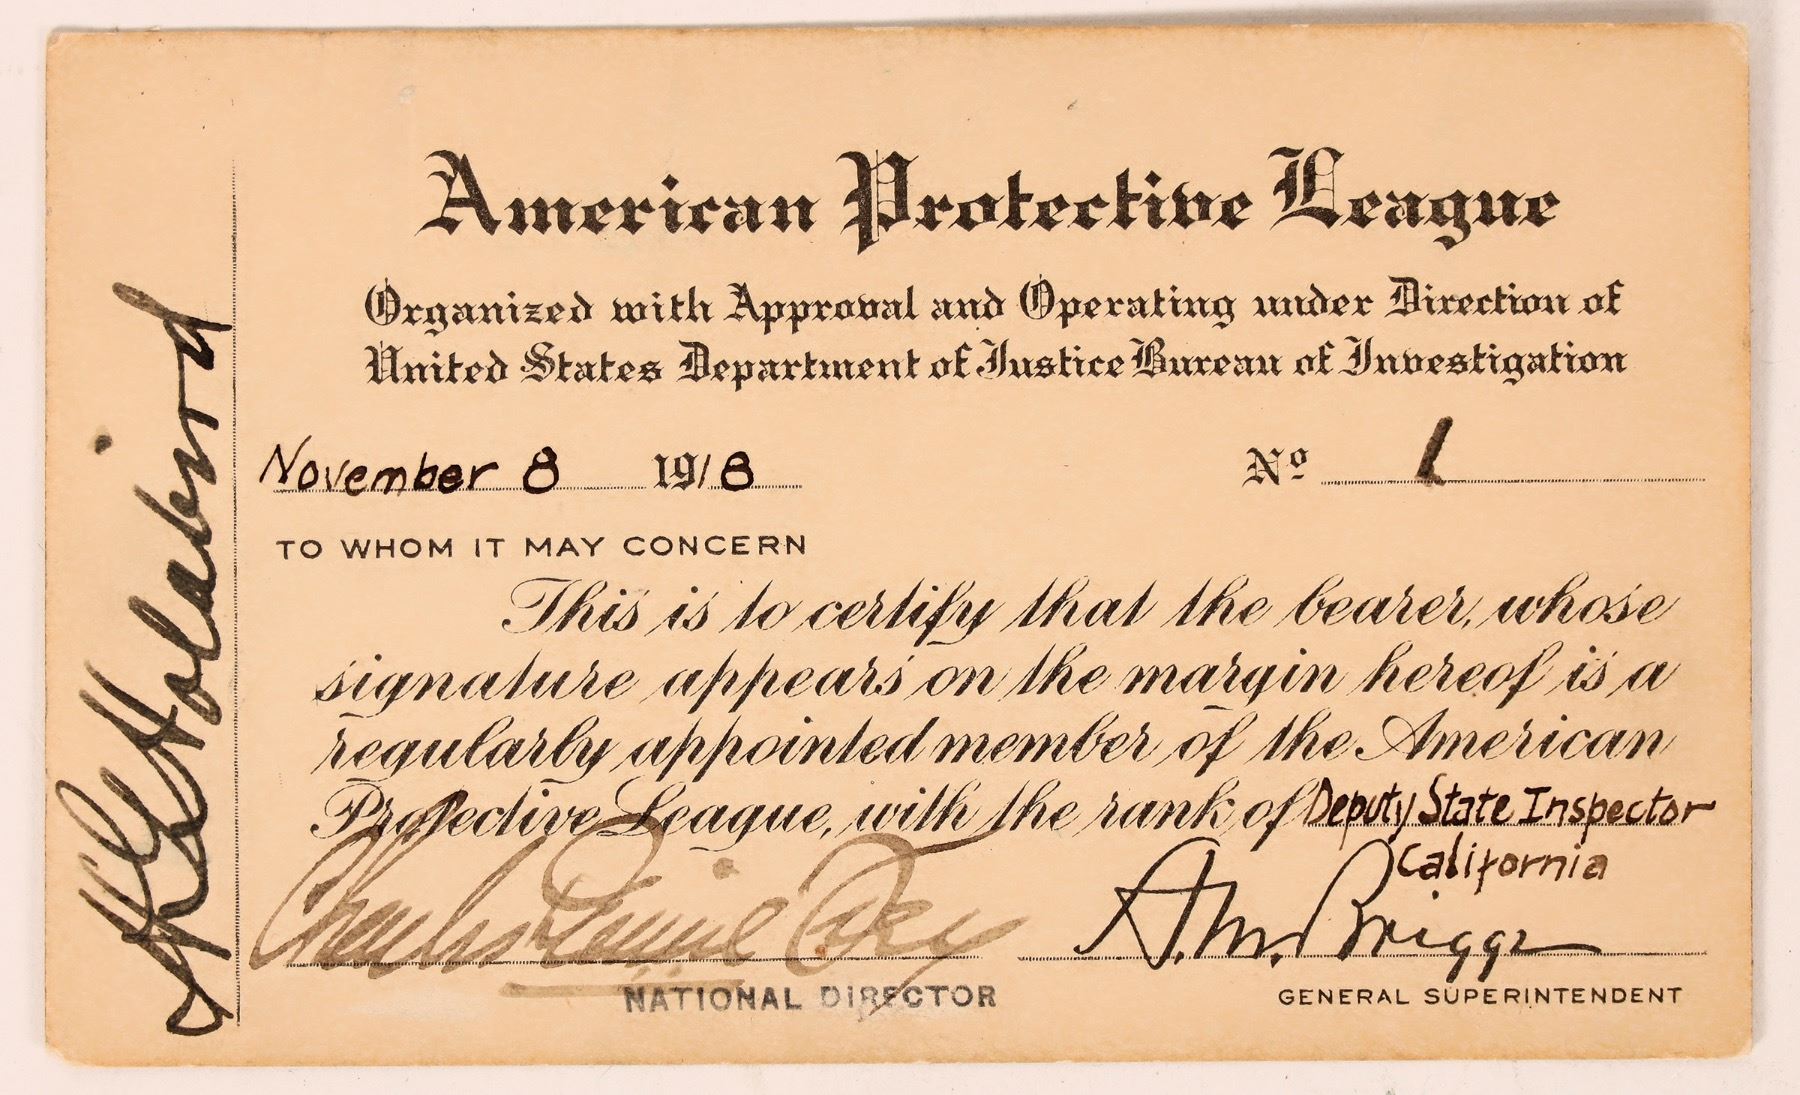 American Protective League
Organized with Approval and Operating under Direction of
United States Department of Justice Bureau of Investigation
November 8 1918 No 1
TO WHOM IT MAY CONCERN
This is to certify that the bearer, whose
signature appears on the margin hereof is a
regularly appointed member of the American
Protective League, with the rank of Deputy State Inspector
California
Charles Daniel Frey A.M. Briggs
NATIONAL DIRECTOR GENERAL SUPERINTENDENT
Holabird